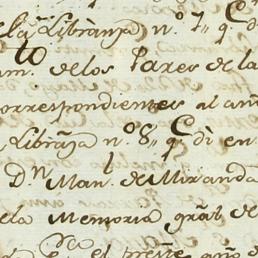 la Libranza n.º 7, q.
am. de los Pares de la
correspondientes al añ
Libr̃za n.º 8, q. dì en
D.n Man.l de Miranda
la Memoria gral de
el pres.te año d